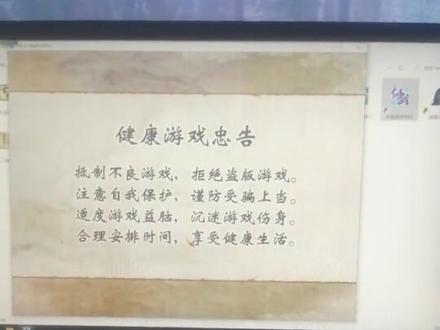 健康游戏忠告
抵制不良游戏，拒绝盗版游戏。
注意自我保护，谨防受骗上当。
适度游戏益脑，沉迷游戏伤身。
合理安排时间，享受健康生活。